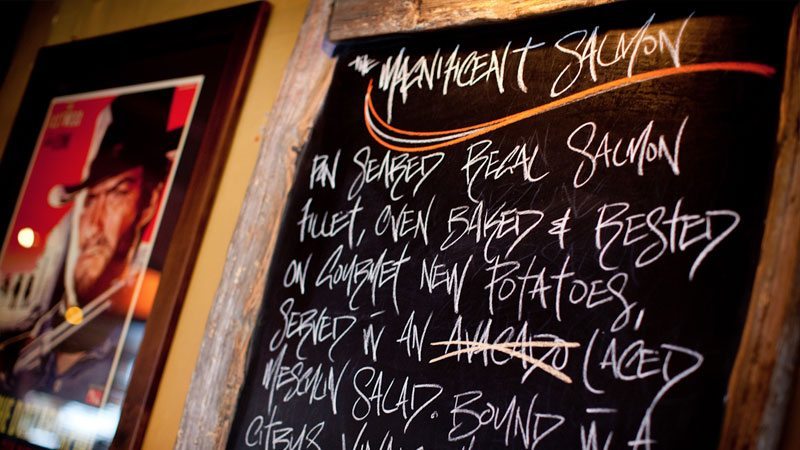 THE MAGNIFICENT SALMON
PAN SEARED REGAL SALMON
FILLET, OVEN BAKED & RESTED
ON GOURMET NEW POTATOES,
SERVED IN AN AVACADO LACED
MESCLUN SALAD. BOUND IN A
CITRUS